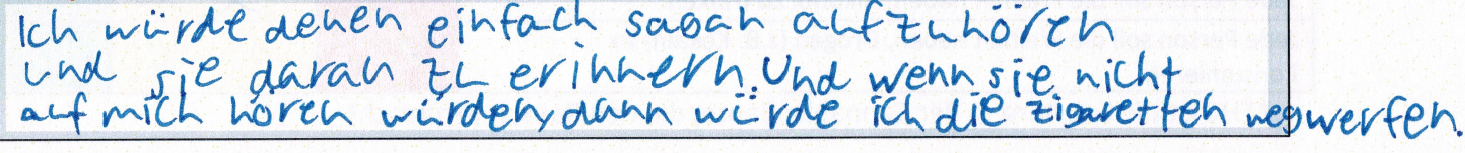 Ich würde denen einfach sagen aufzuhören
und sie daran zu erinnern. Und wenn sie nicht
auf mich hören würden, dann würde ich die zigaretten wegwerfen.